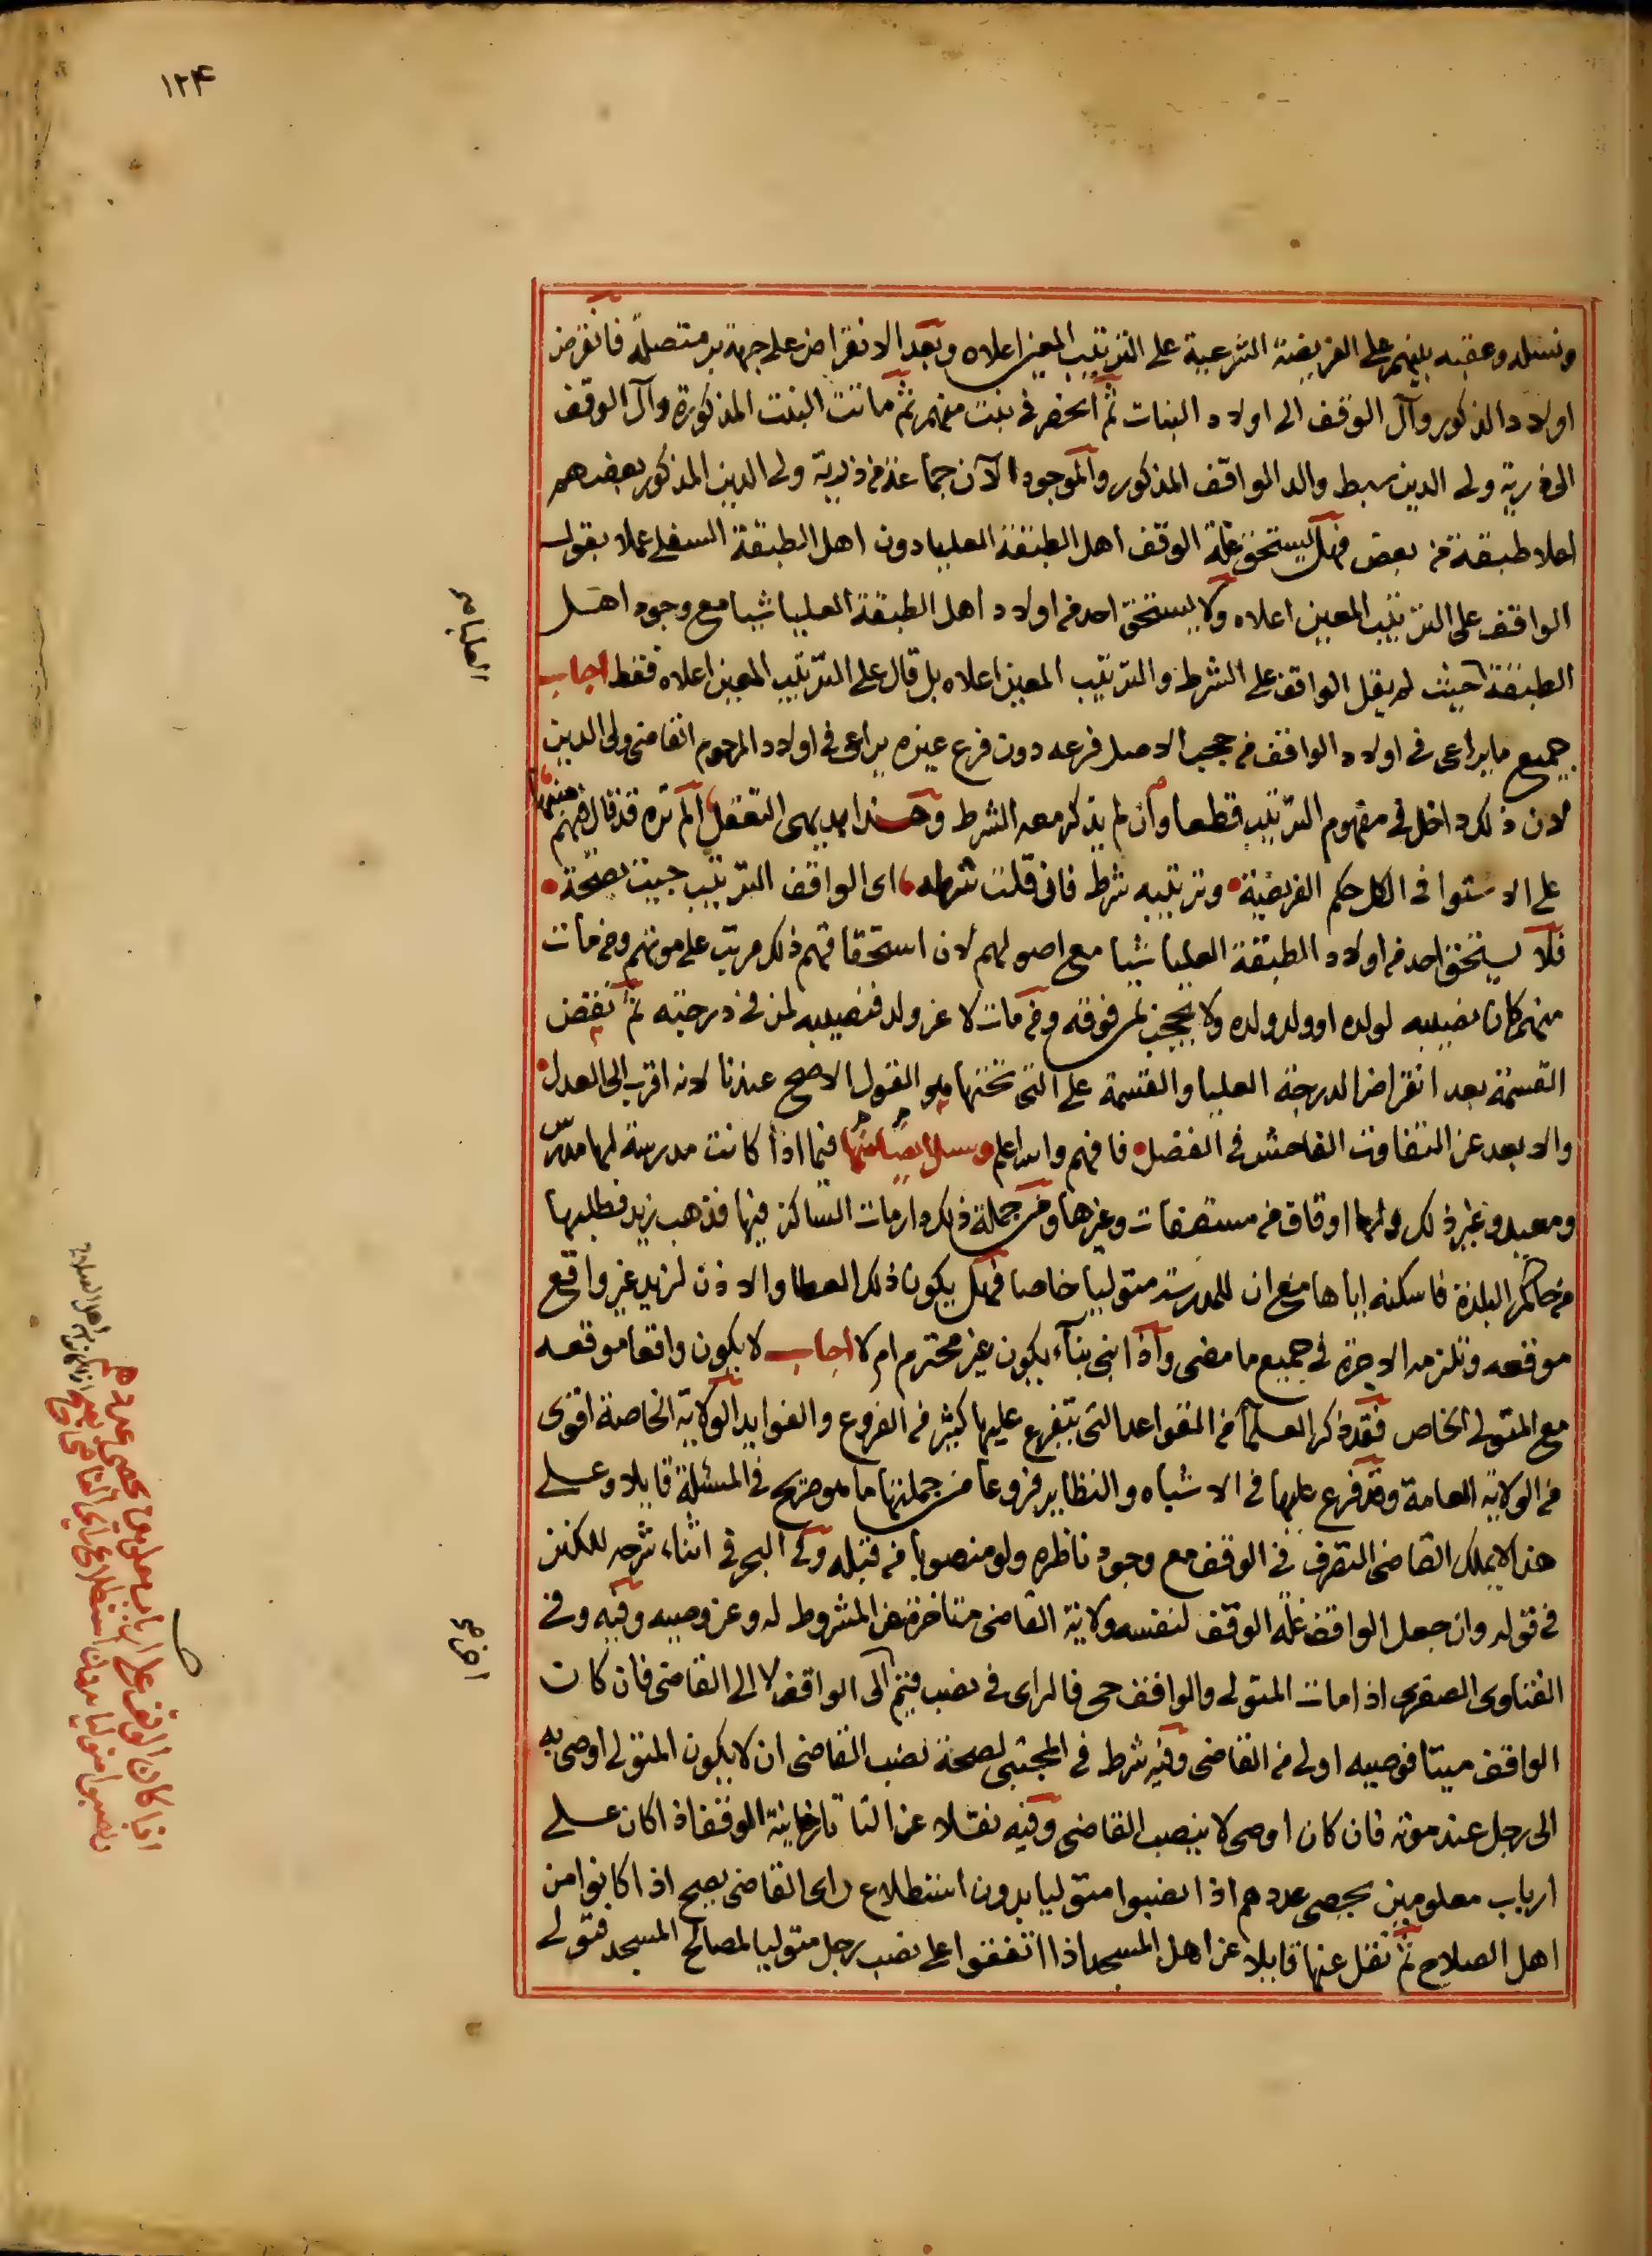 ١٢٤
ونسله وعقبه بينهم على الفريضة الشرعية على الترتيب المعين اعلاه وبعد الانقراض على جهة بر متصلة فانقرض
اولاد الذكور وآل الوقف الى اولاد البنات ثم انحصر فى بنت منهم ثم ماتت البنت المذكورة وآل الوقف
الى ذرية ولى الدين سبط والد الواقف المذكور والموجود الآن جماعة من ذرية ولى الدين المذكور بعضهم
اعلا طبقة من بعض فهل يستحق غلة الوقف اهل الطبقة العليا دون اهل الطبقة السفلى عملا بقول
الواقف على الترتيب المعين اعلاه ولا يستحق احد من اولاد اهل الطبقة العليا شيا مع وجود اهل
الطبقة حيث لم يقل الواقف على الشرط والترتيب المعين اعلاه بل قال على الترتيب المعين اعلاه فقط اجاب
العليا صح
جميع ما يراعى فى اولاد الواقف من حجب الاصل فرعه دون فرع غيره يراعى فى اولاد المرحوم القاضى ولى الدين
لان ذلك داخل فى مفهوم الترتيب قطعا وان لم يذكر معه الشرط وهذا بديهى التعقل الم تره قد قال فيهم
على الاستوا فى الكل حكم الفريضة وترتيبه شرط فان قلت شرطه اى الواقف الترتيب جيت بصحة
فلا يستحق احد من اولاد الطبقة العليا شيا مع اصولهم لان استحقاقهم ذلك مرتب على موتهم ومن مات
منهم كان نصيبه لولده او ولد ولده ولا يحجب بمن فوقه ومن مات لا عن ولد فنصيبه لمن فى درجته ثم تنقض
القسمة بعد انقراض الدرجة العليا والقسمة على التى تحتها وهو القول الاصح عندنا لانه اقرب الى العدل
والابعد عن التفاوت الفاحش فى الفضل فافهم والله اعلم وسئل ايضا منها فيما اذا كانت مدرسة لها مدرس
ومعيد وغير ذلك ولها اوقاف من مستقفات وغيرها ومن جملة ذلك دار مات الساكن فيها فذهب زيد فطلبها
من حاكم البلدة فاسكنه اياها مع ان للمدرسة متوليا خاصا فهل يكون ذلك العطا والاذن لزيد غير واقع
موقعه وتلزمه الاجرة فى جميع ما مضى واذا بنى بناء يكون غير محترم ام لا اجاب لا يكون واقعا موقعه
مع المتولى الخاص فقد ذكر العلما من القواعد التى يتفرع عليها كثير من الفروع والفوايد الولاية الخاصة اقوى
من الولاية العامة وقد فرع عليها فى الاشباه والنظاير فروعا من جملتها ما هو صريح فى المسئلة قايلا وعلى
هذا لا يملك القاضى التصرف فى الوقف مع وجود ناظره ولو منصوبا من قبله وفى البحر فى اثناء شرحه للكنز
فى قوله وان جعل الواقف غلة الوقف لنفسه ولاية القاضى متاخرة عن المشروط له وعن وصيه وفيه وفى
الفتاوى الصغرى اذا مات المتولى والواقف حى فالراى فى نصب قيم الى الواقف لا الى القاضى فان كان
الواقف ميتا فوصيه اولى من القاضى وفيه شرط فى المجتبى لصحة نصب القاضى ان لا يكون المتولى اوصى به
الى رجل عند موته فان كان اوصى لا ينصب القاضى وفيه نقلا عن التاتارخانية الوقف اذا كان على
ارباب معلومين يحصى عددهم اذا نصبوا متوليا بدون استطلاع راى القاضى يصح اذا كانوا من
اهل الصلاح ثم نقل عنها قايلا عن اهل المسجد اذا اتفقوا على نصب رجل متوليا لمصالح المسجد فتولى
اذا كان الوقف على ارباب معلومين يحصى عددهم
نصبوا متوليا بدون استطلاع راى القاضى يصح